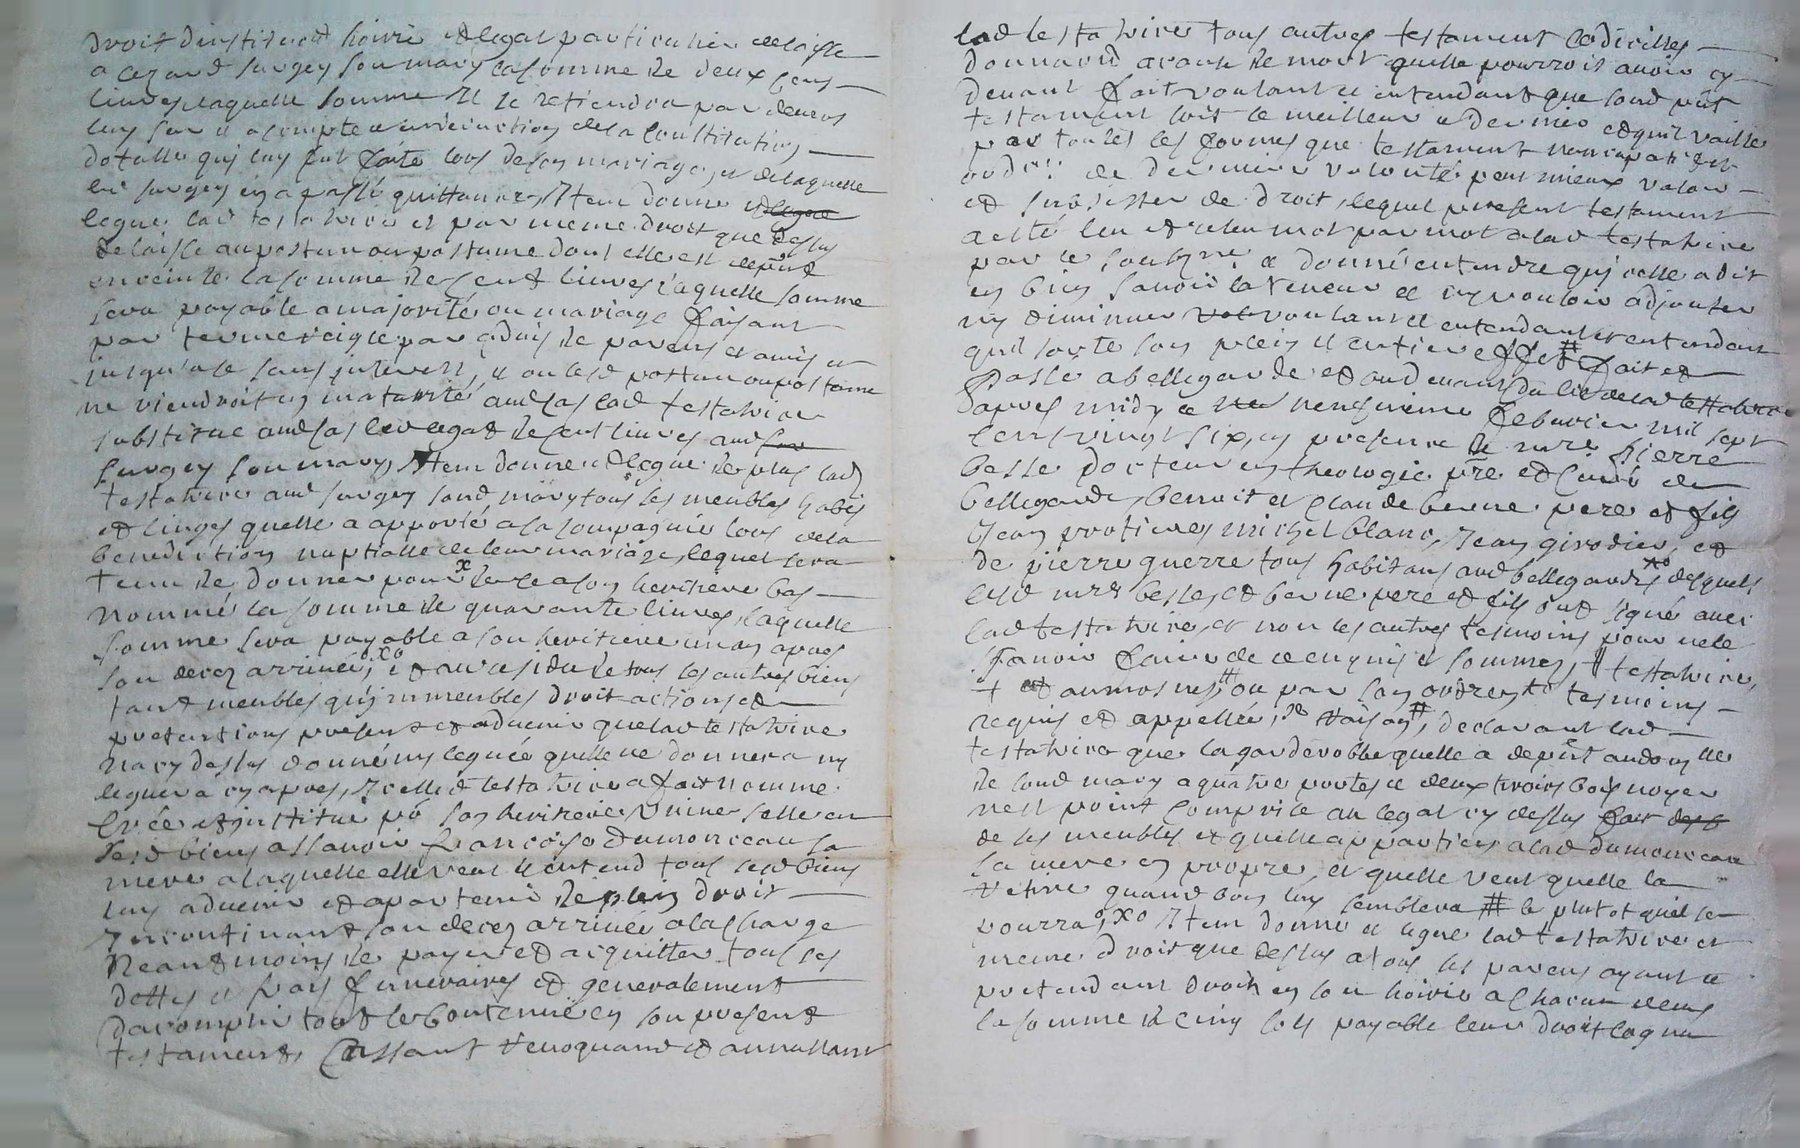 droit dinstitu͠on hoirie et legat particulier delaisse
a cezard surgey son mary la somme de deux cens
livres, laquelle somme Il se retiendra par devers
luy sur et acompte de la constitution
dotalle quj luy fut faite lors de son mariage, et delaquelle
led surgey en a passé quittance, Item donne et legue
legue lad testatrice et par meme droit que dessus
delaisse au postum ou postume dont elle est
enceinte la somme de cent livres laquelle somme
sera payable a majorité ou mariage faisant
par terme par advis de parens et amis et
jusqu'ale sans jnterest, et ou led postum ou postume
ne viendroit en maturité aud cas lad testatrice
substitue aud cas led legat de cent livres aud
surgey son mary, Item donne et legue de plus lad
testatrice aud surgey sond mary tous les meubles habis
et linges quelle a apporté a sa compagnie lors dela
benediction nuptialle de leur mariage, lequel sera
tenu de donner pour x a son heritiere bas
nommé la somme de quarante livres, laquelle
somme sera payable a son heritiere un an apres
son decez arrivée, xo et au residu de tous les autres biens
tant meubles qu'jmmeubles droit actions et
pretentions present et advenir que lad testatrice
na cy dessus donné ny legué quelle ne donnera ny
leguera cy apres, Icelle testatrice a fait nomme
creé et jnstitué po son heritiere seulle en
sesd biens assavoir françoise dumonceau sa
mere a laquelle elle veut et entend tous sesd biens
luy advenir et apartenir de plein droit
Incontinant son decez arrivée ala charge
Neantmoins de payer et acquitter tous ses
dettes et frais funeraires et generalement
dacomplir tout le contenu en son present
testament, Cassant revoquant et annullant
lad testatrice tous autres testament codicilles
donnaõn a cause de mort quelle pourroit avoir cy
devant fait voulant et entendant que sond pnt
testament soit le meilleur et dernier et quil vaille
par toutes les formes que testament
de derniere volonté peut mieux valoir
et subsister de droit, lequel present testament
a esté leu et releu mot par mot a lad testatrice
par le soubzné et donné entendre quj celle a dit
en bien savoir la teneur et ny vouloir adjouter
ny diminuer voulant et entendant
quil sorte son plein et entier effet # fait et
passé a bellegarde et au devant du lad testatrice
apres midy ce neufvieme febvrier mil sept
cens vingt six, en presence de mre pierre
besse docteur en theologie pre et curé de
bellegarde, benoit et claude berne pere et fils
Jean protiere, michel blanc, Jean girodier, et
de pierre guerre tous habitans aud bellegarde xo desquels
lesd mrs besse, et berne pere et fils ont signé avec
lad testatrice, et non les autres tesmoins pour ne le
savoir faire de ce enquis et sommes, testatrice,
+ et aumosnes, # ou par son ordre, tesmoins
requis et appellée, raison #, declarant lad
testatrice que la garderobbe quelle a
de sond mary a quatre portes et deux tiroirs bois noyer
nest point comprise au legat cy dessus
de ses meubles et quelle appartien a lad dumonceau
sa mere en propre, et quelle veut quelle la
retire quand bon luy semblera # le plutot quil se
pourra, xo Item donne et legue lad testatrice et
meme droit que dessus a tous les parens ayant et
pretendant droit en son hoirie a chacun deux
la somme de cinq sols payable leur droit